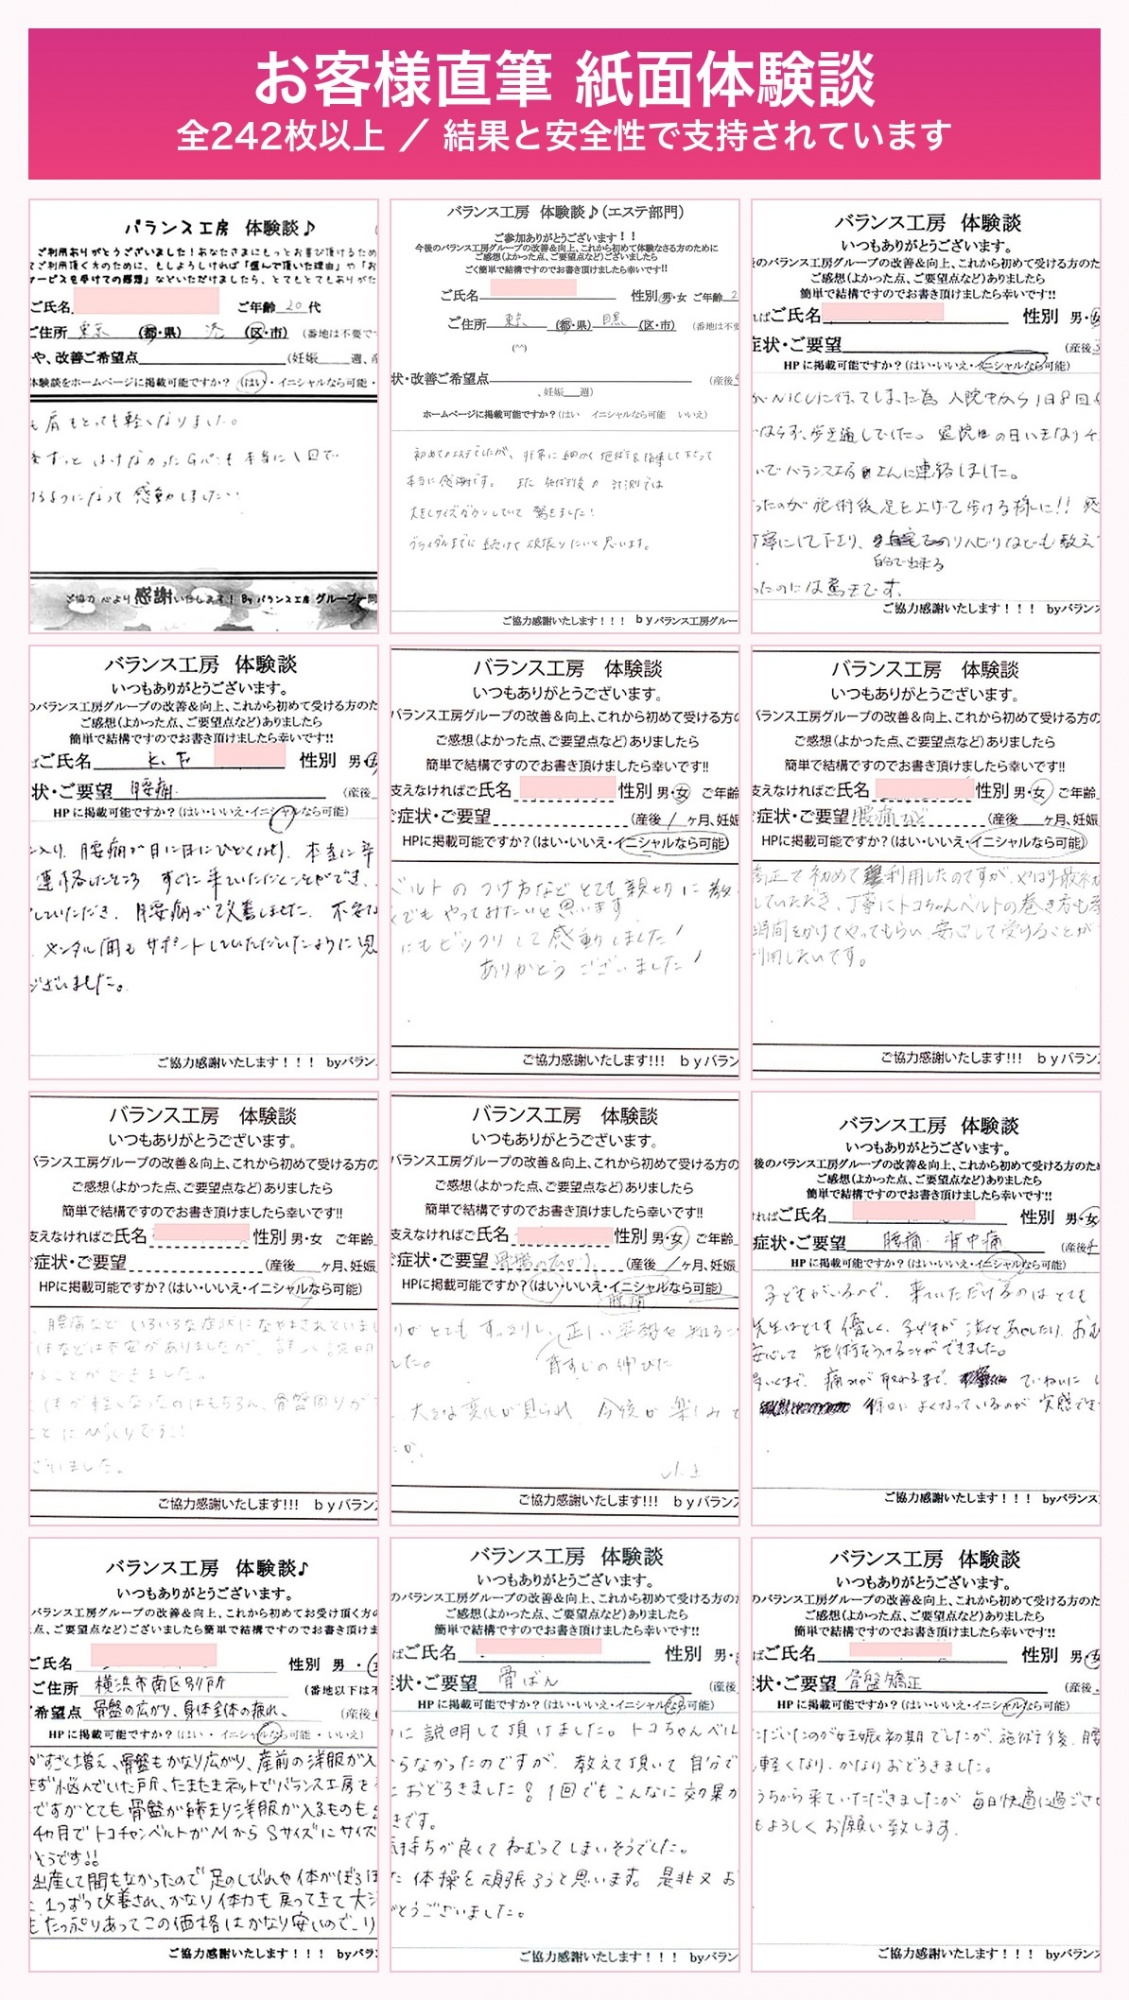 お客様直筆 紙面体験談
全242枚以上 / 結果と安全性で支持されています
バランス工房 体験談♪
ご利用ありがとうございました!あなたさまにもっとお喜び頂けるため
てご利用頂く方のために、もしよろしければ「選んで頂いた理由」や「お
サービスを受けての感想」などいただけましたら、とてもとてもありがた
ご氏名 ご年齢 20 代
ご住所 東京 (都・県) 港 (区・市) (番地は不要で
や、改善ご希望点 (妊娠 週、産
体験談をホームページに掲載可能ですか? (はい・イニシャルなら可能・
も 肩もとっても軽くなりました。
本当に1回で
るようになって 感動しました
ご協力 心より感謝いたします! By バランス工房 グループ一同
バランス工房 体験談♪(エステ部門)
ご参加ありがとうございます!!
今後のバランス工房グループの改善&向上、これから初めて体験なさる方のために
ご感想(よかった点、ご要望点など)ございましたら
ごく簡単で結構ですのでお書き頂けましたら幸いです!!
ご氏名 性別 男・女 ご年齢 2
ご住所 東京 (都・県) 目黒 (区・市) (番地は不要
(^^)
状・改善ご希望点 (産後
、妊娠 週)
ホームページに掲載可能ですか?(はい イニシャルなら可能 いいえ)
初めてのエステでしたが、非常に細かく
本当に感謝です。 また 施術後の計測では
大きくサイズダウンしていて 驚きました!
ブライダルまでに 続けて頑張りたいと思います。
ご協力感謝いたします!!! byバランス工房グルー
バランス工房 体験談
いつもありがとうございます。
後のバランス工房グループの改善&向上、これから初めて受ける方のた
ご感想(よかった点、ご要望点など)ありましたら
簡単で結構ですのでお書き頂けましたら幸いです!!
ればご氏名 性別 男・女
症状・ご要望 (産後
HP に掲載可能ですか?(はい・いいえ・イニシャルなら可能)
がNICUに行ってしまった為 入院中から1日8回
ならず、歩き通していた。退院の日いきなり
いでバランス工房さんに連絡しました。
ったのが 施術後 足を上げて歩ける様に!!
丁寧にして下さり、 のリハビリなども教えて
自分で出来る
ったのには驚きです。
ご協力感謝いたします!!! byバランス
バランス工房 体験談
いつもありがとうございます。
のバランス工房グループの改善&向上、これから初めて受ける方のた
ご感想(よかった点、ご要望点など)ありましたら
簡単で結構ですのでお書き頂けましたら幸いです!!
ばご氏名 性別 男・女
状・ご要望 腰痛 (産後
HP に掲載可能ですか?(はい・いいえ・イニシャルなら可能)
に入り、腰痛が日に日にひどくなり、本当に辛
連絡したところ すぐに来ていただくことができ、
していただき、腰痛が改善しました。不安な
メンタル面もサポートしていただいたように思
ございました。
ご協力感謝いたします!!! byバラン
バランス工房 体験談
いつもありがとうございます。
バランス工房グループの改善&向上、これから初めて受ける方の
ご感想(よかった点、ご要望点など)ありましたら
簡単で結構ですのでお書き頂けましたら幸いです!!
支えなければご氏名 性別 男・女 ご年齢
症状・ご要望 (産後 1 ヶ月、妊娠
HPに掲載可能ですか?(はい・いいえ・イニシャルなら可能)
ベルトのつけ方など とても親切に 教
でもやってみたいと思います
にもビックリして感動しました!
ありがとうございました!
ご協力感謝いたします!!! byバラン
バランス工房 体験談
いつもありがとうございます。
バランス工房グループの改善&向上、これから初めて受ける方の
ご感想(よかった点、ご要望点など)ありましたら
簡単で結構ですのでお書き頂けましたら幸いです!!
支えなければご氏名 性別 男・女 ご年齢
症状・ご要望 腰痛など (産後 ヶ月、妊娠
HPに掲載可能ですか?(はい・いいえ・イニシャルなら可能)
矯正で初めて利用したのですが、やはり最初
していただき、丁寧にトコちゃんベルトの巻き方も
時間をかけてやってもらい 安心して受けることが
利用したいです。
ご協力感謝いたします!!! byバラン
バランス工房 体験談
いつもありがとうございます。
バランス工房グループの改善&向上、これから初めて受ける方の
ご感想(よかった点、ご要望点など)ありましたら
簡単で結構ですのでお書き頂けましたら幸いです!!
支えなければご氏名 性別 男・女 ご年齢
症状・ご要望 (産後 ヶ月、妊娠
HPに掲載可能ですか?(はい・いいえ・イニシャルなら可能)
、腰痛など いろいろな症状になやまされていまし
などは不安がありましたが、詳しい説明
ることができました。
体が軽くなったのはもちろん、骨盤回りが
ことにびっくりです!!
ございました。
ご協力感謝いたします!!! byバラン
バランス工房 体験談
いつもありがとうございます。
バランス工房グループの改善&向上、これから初めて受ける方の
ご感想(よかった点、ご要望点など)ありましたら
簡単で結構ですのでお書き頂けましたら幸いです!!
支えなければご氏名 性別 男・女 ご年齢
症状・ご要望 骨盤の広がり (産後 ヶ月、妊娠
HPに掲載可能ですか?(はい・いいえ・イニシャルなら可能)
りがとてもすっきりし、正しい姿勢を知るこ
した。 背すじの伸びた
大きな変化が見られ 今後が楽しみで
ご協力感謝いたします!!! byバラン
バランス工房 体験談
いつもありがとうございます。
後のバランス工房グループの改善&向上、これから初めて受ける方のため
ご感想(よかった点、ご要望点など)ありましたら
簡単で結構ですのでお書き頂けましたら幸いです!!
ればご氏名 性別 男・女
症状・ご要望 腰痛・背中痛 (産後
HP に掲載可能ですか?(はい・いいえ・イニシャルなら可能)
子どもがいるので、来ていただけるのはとても
先生はとても優しく、子どもが泣くとあやしたり、おむ
安心して 施術をうけることができました。
痛みが取れるまで、 ていねいに
徐々に よくなっているのが 実感でき
ご協力感謝いたします!!! byバランス
バランス工房 体験談♪
いつもありがとうございます。
バランス工房グループの改善&向上、これから初めてお受け頂く方の
点、ご要望点など)ございましたら簡単で結構ですのでお書き頂けま
ご氏名 性別 男・女
ご住所 横浜市南区別所 (番地以下は不
希望点 骨盤の広がり、身体全体の疲れ、 (産後
HP に掲載可能ですか?(はい・イニシャルなら可能・いいえ)
がすごく増え、骨盤もかなり広がり、産前の洋服が入
きず悩んでいた所、たまたまネットでバランス工房を
ですがとても骨盤が締まり洋服が入るものも
4ヵ月でトコチャンベルトがMからSサイズにサイズ
そうです!!
出産して間もなかったので足のしびれや体がぼろぼ
1つずつ改善され、かなり体力も戻ってきて大
もたっぷりあってこの価格はかなり安いので、リ
ご協力感謝いたします!!! byバラ
バランス工房 体験談
いつもありがとうございます。
のバランス工房グループの改善&向上、これから初めて受ける方の
ご感想(よかった点、ご要望点など)ありましたら
簡単で結構ですのでお書き頂けましたら幸いです!!
ばご氏名 性別 男・
症状・ご要望 骨ばん (産後
HP に掲載可能ですか?(はい・いいえ・イニシャルなら可能)
に説明して頂けました。トコちゃんベル
らなかったのですが、教えて頂いて自分で
におどろきました!! 1回でもこんなに効果が
きです。
気持ちが良くてねむってしまいそうでした。
た体操を頑張ろうと思います。是非又お
がとうございました。
ご協力感謝いたします!!! byバラン
バランス工房 体験談
いつもありがとうございます。
のバランス工房グループの改善&向上、これから初めて受ける方のた
ご感想(よかった点、ご要望点など)ありましたら
簡単で結構ですのでお書き頂けましたら幸いです!!
ばご氏名 性別 男・女
状・ご要望 骨盤矯正 (産後
HP に掲載可能ですか?(はい・いいえ・イニシャルなら可能)
ただいたのが妊娠初期でしたが、施術後、腰
軽くなり、かなりおどろきました。
うちから来ていただきましたが 毎日快適に過ごさせ
もよろしくお願い致します。
ご協力感謝いたします!!! byバラン